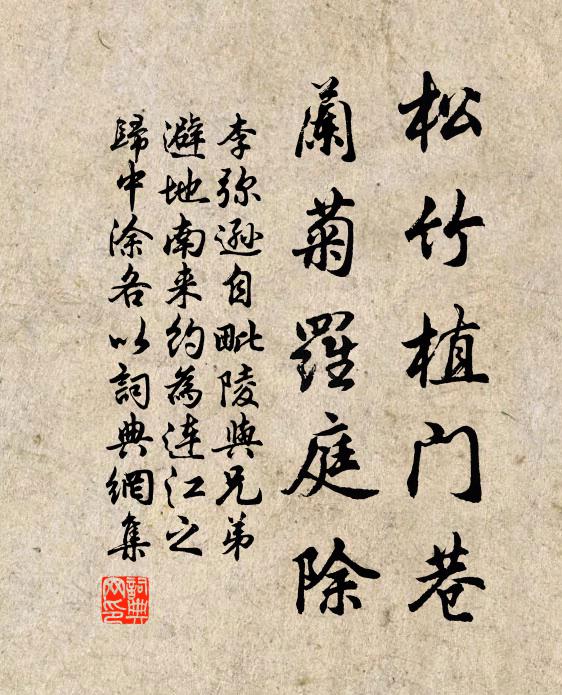 松竹植门巷
蘭菊羅庭除
李弥遜自毗陵與兄弟
避地南来約為连江之
歸中涂各以詞典網集
詞典
网印